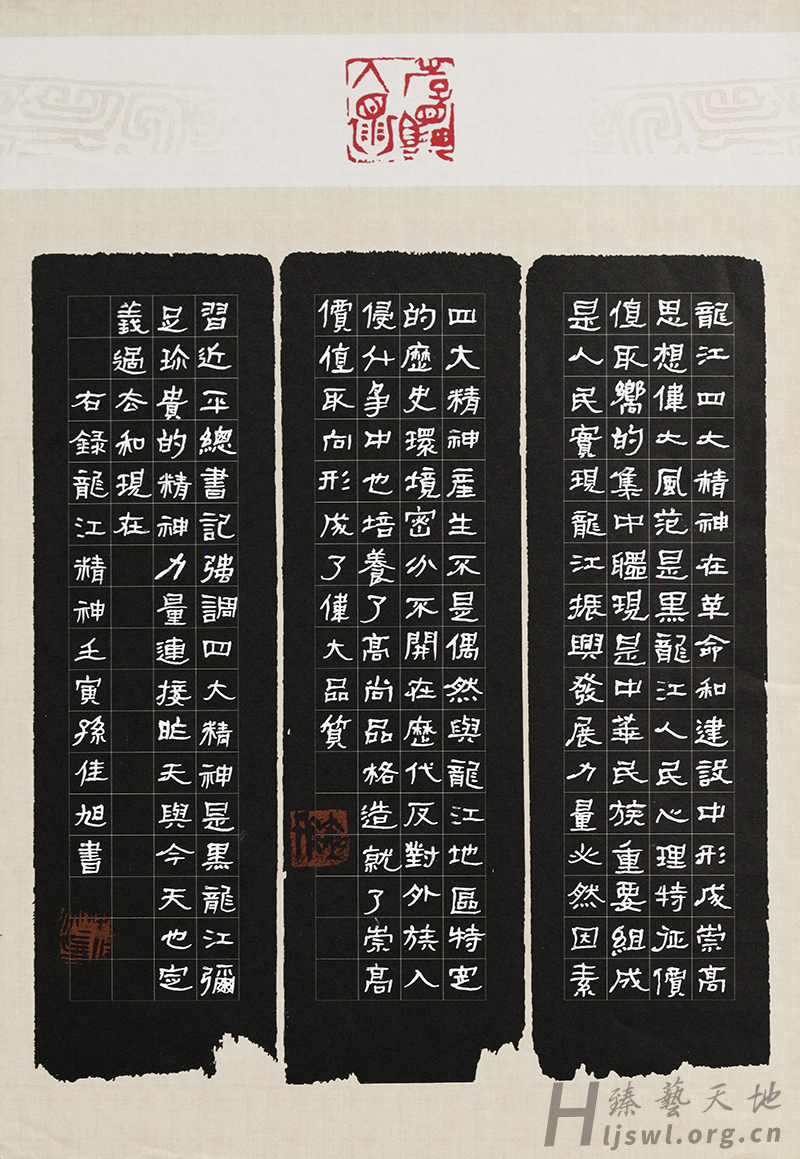 龍江四大精神在革命和建設中形成崇高
思想偉大風范是黑龍江人民心理特征價
值取嚮的集中體現是中華民族重要組成
是人民實現龍江振興發展力量必然因素
四大精神產生不是偶然與龍江地區特定
的歷史環境密分不開在歷代反對外族入
侵斗爭中也培養了高尚品格造就了崇高
價值取向形成了偉大品質
習近平總書記強調四大精神是黑龍江彌
足珍貴的精神力量連接昨天與今天也定
義過去和現在
右錄龍江精神壬寅孫佳旭書
H臻藝天地
ljswl.org.cn